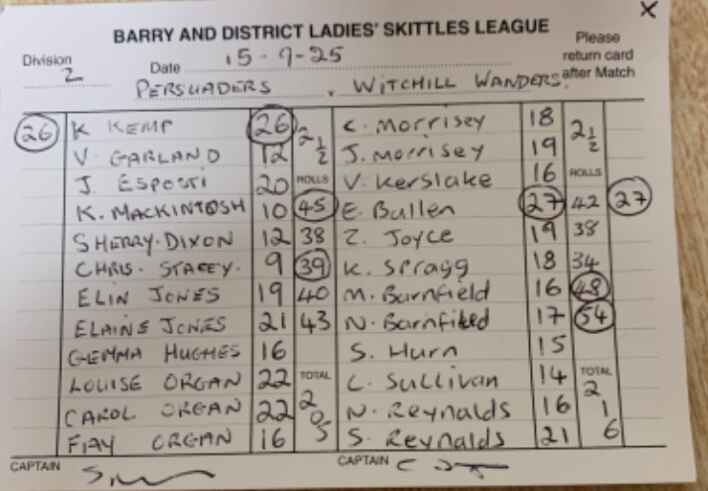 ×
BARRY AND DISTRICT LADIES' SKITTLES LEAGUE
Division 2 Date 15-9-25 Please return card after Match
PERSUADERS . WITCHILL WANDERS.
26 K KEMP 26 2½ C. Morrisey 18 2½
V. GARLAND 12 J. Morrisey 19
J. ESPOSTI 20 ROLLS V. Kerslake 16 ROLLS
K. MACKINTOSH 10 45 E. Bullen 27 42 27
SHERRY-DIXON 12 38 Z. Joyce 19 38
CHRIS. STACEY. 9 39 K. Spragg 18 34
ELIN JONES 19 40 M. Barnfield 16 48
ELAINE JONES 21 43 N. Barnfiled 17 54
GEMMA HUGHES 16 S. Hurn 15
LOUISE ORGAN 22 TOTAL L. Sullivan 14 TOTAL
CAROL ORGAN 22 205 N. Reynalds 16 216
FIAY ORGAN 16 S. Reynalds 21
CAPTAIN CAPTAIN